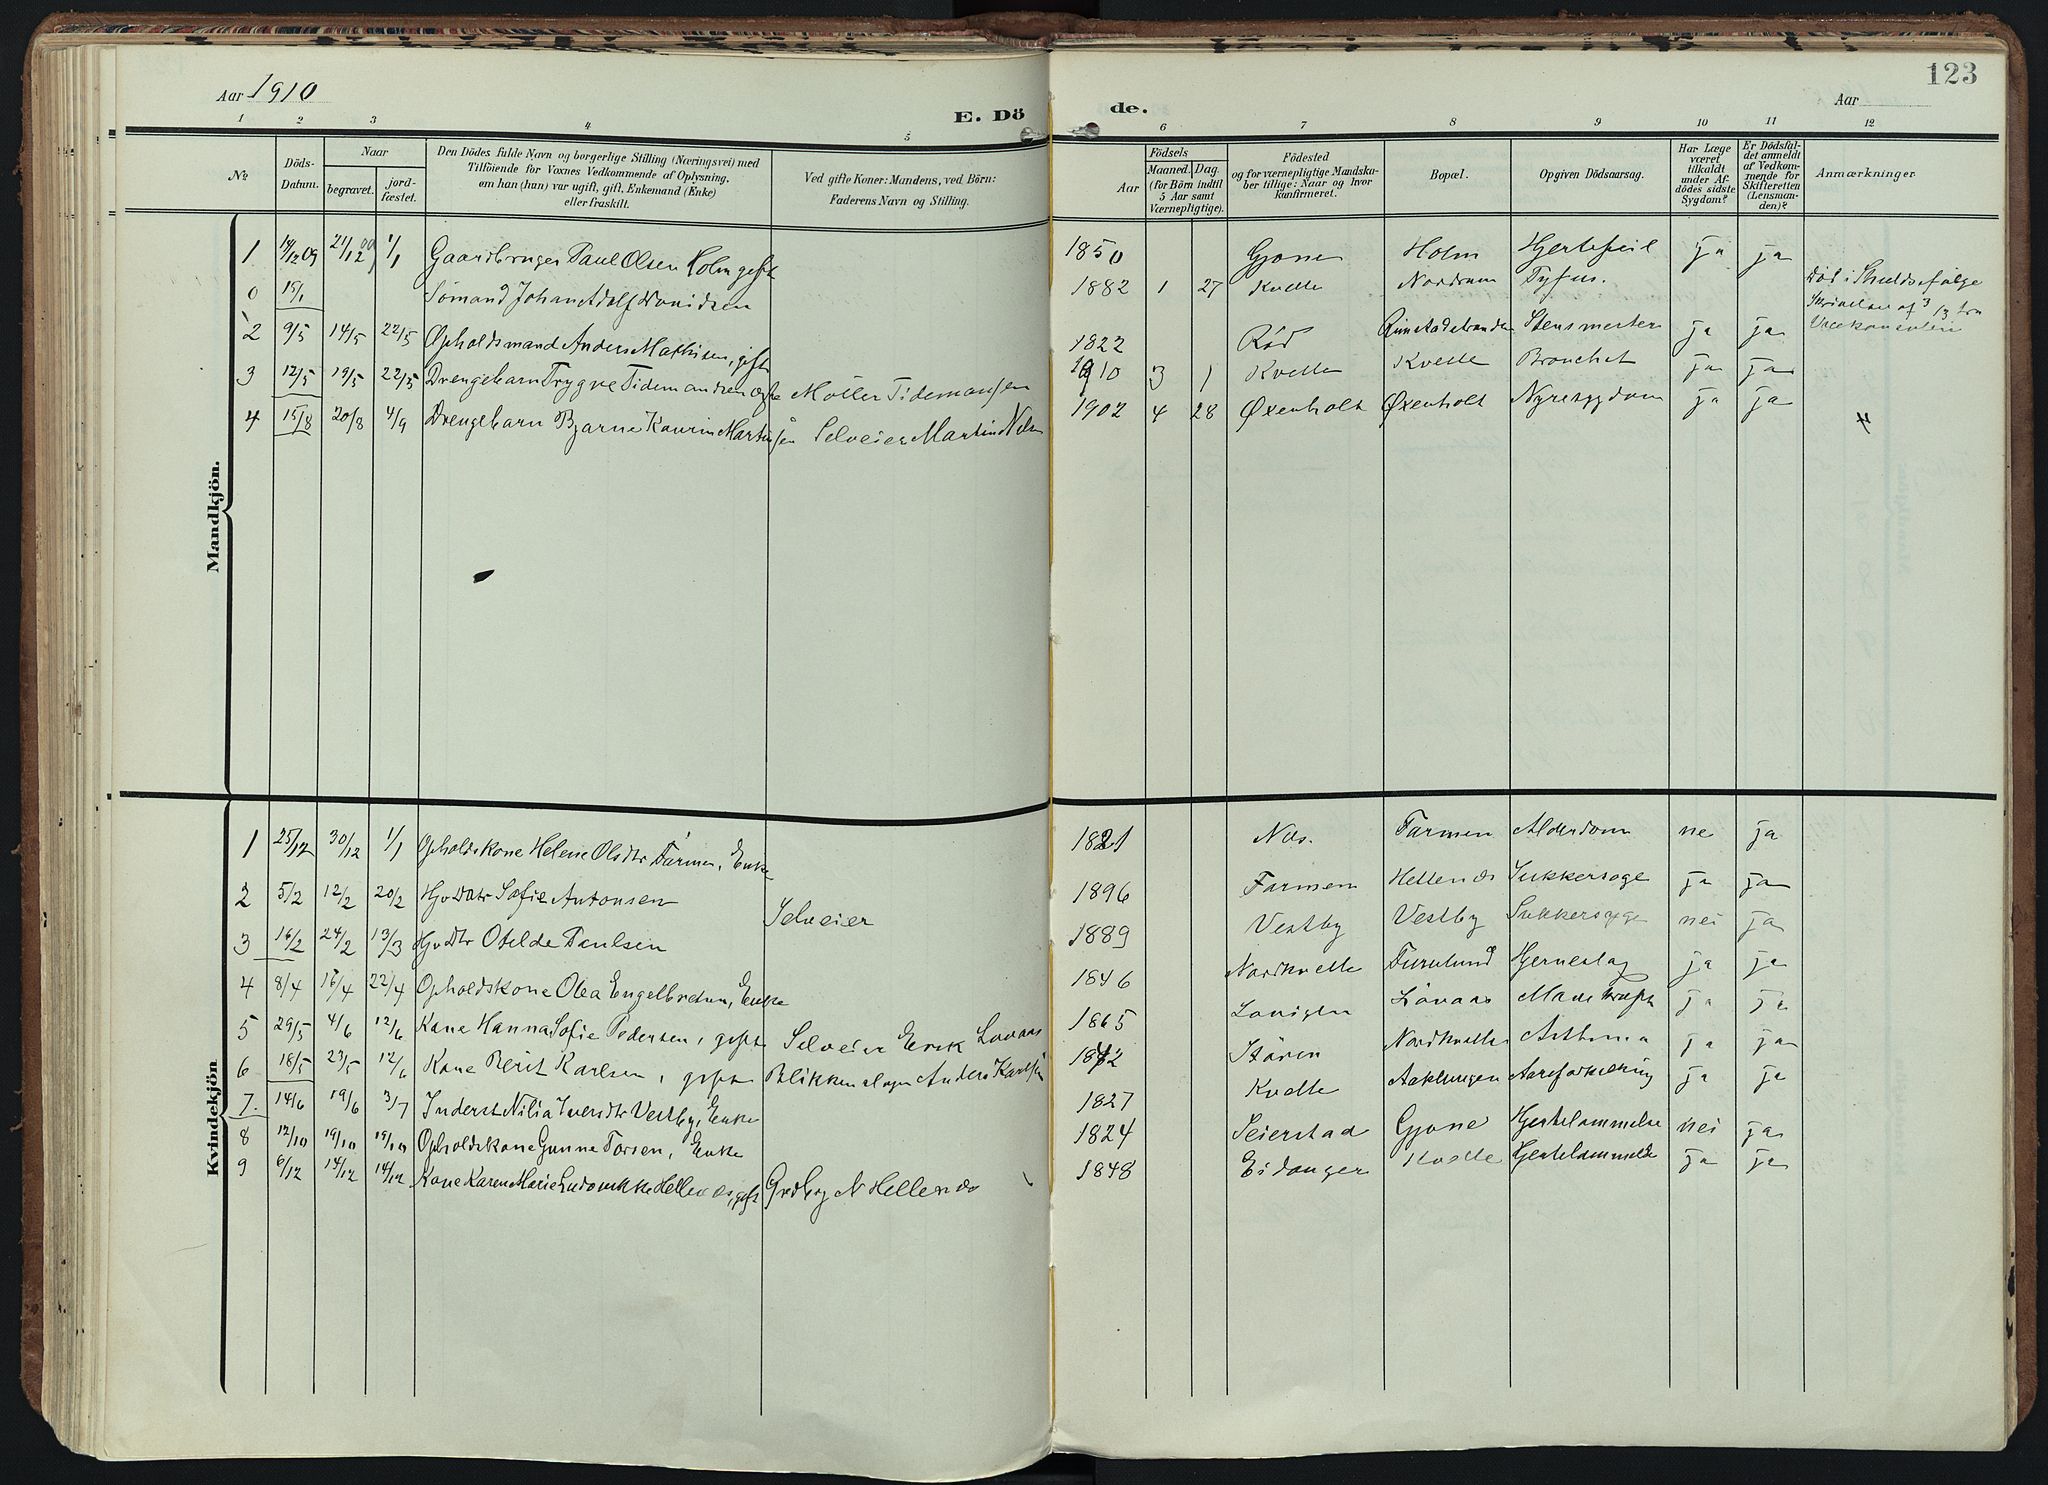 Aar 1910
E. Dö
de.
Aar
123
1 2 3 4 5 6 7 8 9 10 11 12
No.
Döds-
Datum.
Naar
begravet.
jord-
fæstet.
Den Dödes fulde Navn og borgerlige Stilling (Næringsvei) med
Tilföiende for Voxnes Vedkommende af Oplysning.
om han (hun) var ugift, gift, Enkemand (Enke)
eller fraskilt.
Ved gifte Koner: Mandens, ved Börn:
Faderens Navn og Stilling.
Födsels
Aar
Maaned. Dag.
(for Börn indtil
5 Aar samt
Værnepligtige).
Födested
og for værnepligtige Mandska-
ber tillige: Naar og hvor
konfirmeret.
Bopæl.
Opgiven Dödsaarsag.
Har Læge
været
tilkaldt
under Af-
dödes sidste
Sygdom?
Er Dödsfal-
det anmeldt
af Vedkom-
mende for
Skifteretten
(Lensman-
den)?
Anmærkninger
Mandkjön.
1 14/12 09 21/12 09 1/1 Gaardbruger Paul Olsen Holm gift 1850 Gjone Holm Hjertefeil ja ja
0 15/1 Sömand Johan Adolf Davidsen 1882 1 27 Kvelle Nordrum Tyfus. Död i
2 9/5 14/5 22/5 Opholdsmand Anders Mathisen, gift 1822 Röd ja ja
3 12/5 19/5 22/5 Drengebarn Trygve Tidemandsen Möller Tidemansen 1910 3 1 Kvelle Kvelle Bronchit ja ja
4 15/8 20/8 4/9 Drengebarn Bjarne Kaurin Martinsen Selveier Martin 1902 4 28 Øxenholt Øxenholt Nyresygdom ja ja
Kvindekjön
1 25/12 30/12 1/1 Opholdskone Helene Olsdtr Farmen, Enke 1821 Nes. Farmen Alderdom nei ja
2 5/2 12/2 20/2 Sofie Antonsen Selveier 1896 Farmen Sukkersyge ja ja
3 16/2 24/2 13/3 Otelde Paulsen 1889 Vestby Vestby Sukkersyge nei ja
4 8/4 16/4 22/4 Opholdskone Olea Engelbretsen, Enke 1846 Nordkvelle Furulund Hjerneslag ja ja
5 29/5 4/6 12/6 Kone Hanna Sofie Pedersen, gift Selveier Erik Lovaas 1865 Lövaas Mavekræft ja ja
6 18/5 23/5 12/6 Kone Berit Karlsen, gift Blikkenslager Anders Karlsen Stören Nordkvelle Asthma ja ja
7. 14/6 19/6 3/7 Inderst Nilia Iversdtr Vestby, Enke 1827 Kvelle Aaklungen Aareforkalkning ja ja
8 12/10 19/10 19/10 Opholdskone Gunne Torsen, Enke 1824 Seierstad Gjone Hjertelammelse nei ja
9 6/12 14/12 14/12 Kone Karen Marie Ludovikke Hellenes, gift Grdbrg N Hellenes 1848 Eidanger Kvelle Hjertelammelse ja ja